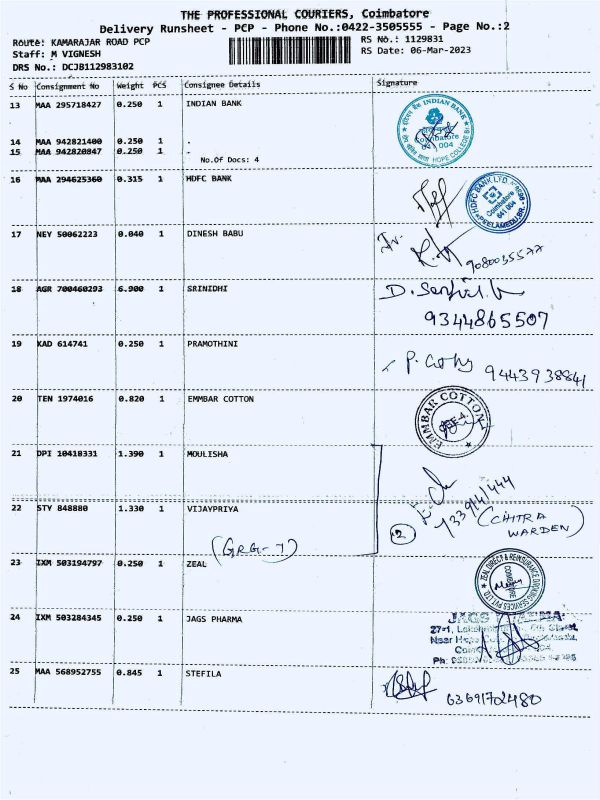 THE PROFESSIONAL COURIERS, Coimbatore
Delivery Runsheet - PCP - Phone No.:0422-3505555 - Page No.:2
Route: KAMARAJAR ROAD PCP
RS No.: 1129831
Staff: M VIGNESH
RS Date: 06-Mar-2023
DRS No.: DCJB112983102
S No Consignment No Weight PCS Consignee Details Signature
13 MAA 295718427 0.250 1 INDIAN BANK
INDIAN BANK
Coimbatore
641 004
HOPE COLLEGE BR
14 MAA 942821400 0.250 1 .
15 MAA 942820847 0.250 1 .
No.Of Docs: 4
16 MAA 294625360 0.315 1 HDFC BANK
HDFC BANK LTD.
Coimbatore
641 004
PEELAMEDU BR.
17 NEY 50062223 0.040 1 DINESH BABU
9080035577
18 AGR 700460293 6.900 1 SRINIDHI
9344865507
19 KAD 614741 0.250 1 PRAMOTHINI
9443938841
20 TEN 1974016 0.820 1 EMMBAR COTTON
EMMBAR COTTON
21 DPI 10418331 1.390 1 MOULISHA
22 STY 848880 1.330 1 VIJAYPRIYA
7339141444
2
(CHITRA
WARDEN)
(GRG-7)
23 IXM 503194797 0.250 1 ZEAL
ZEAL DIRECT & REINSURANCE BROKING SERVICES PVT LTD.
COIMBATORE
24 IXM 503284345 0.250 1 JAGS PHARMA
25 MAA 568952755 0.845 1 STEFILA
6369172480